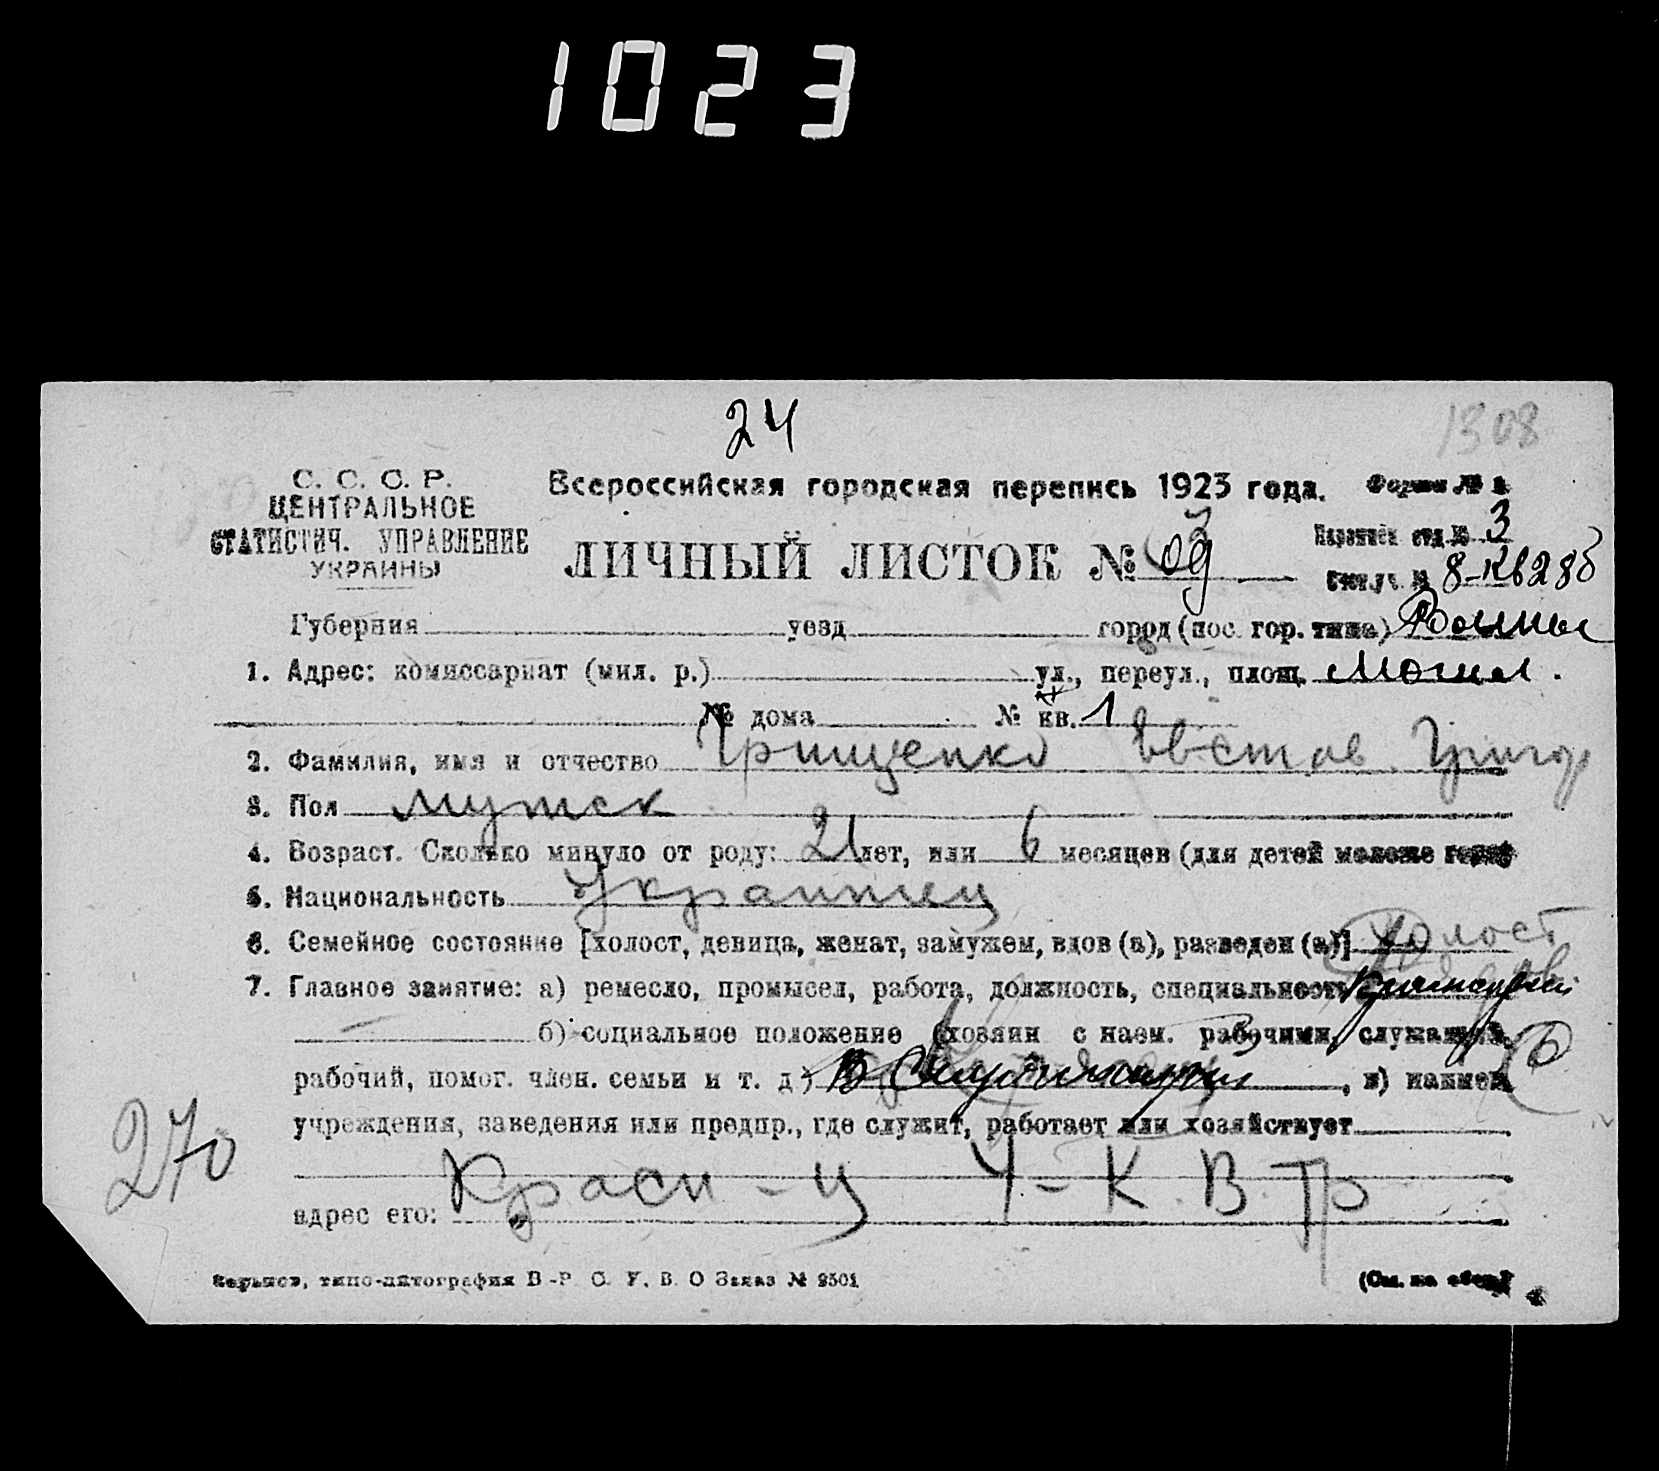 1023
24
1308
С. С. С. Р.
ЦЕНТРАЛЬНОЕ
СТАТИСТИЧ. УПРАВЛЕНИЕ
УКРАИНЫ
Всероссийская городская перепись 1923 года.
Форма № 1
ЛИЧНЫЙ ЛИСТОК №
3
8-кв28б
Губерния уезд город (пос. гор. типа) Ромны
1. Адрес: комиссариат (мил. р.) ул., переул., площ.
№ дома № кв. 1
2. Фамилия, имя и отчество Грищенко Григор
3. Пол мужск
4. Возраст. Сколько минуло от роду: 21 лет, или 6 месяцев (для детей моложе
5. Национальность Украинец
6. Семейное состояние [холост, девица, женат, замужем, вдов (а), разведен (а)] Холост
7. Главное занятие: а) ремесло, промысел, работа, должность, специальность
б) социальное положение (хозяин с наем. рабочими, служащий,
рабочий, помог. член. семьи и т. д.) , в) наимен.
учреждения, заведения или предпр., где служит, работает или хозяйствует
270
адрес его:
Харьков, типо-литография В-Р. С. У. В. О Заказ № 9501
(См. на обор.)